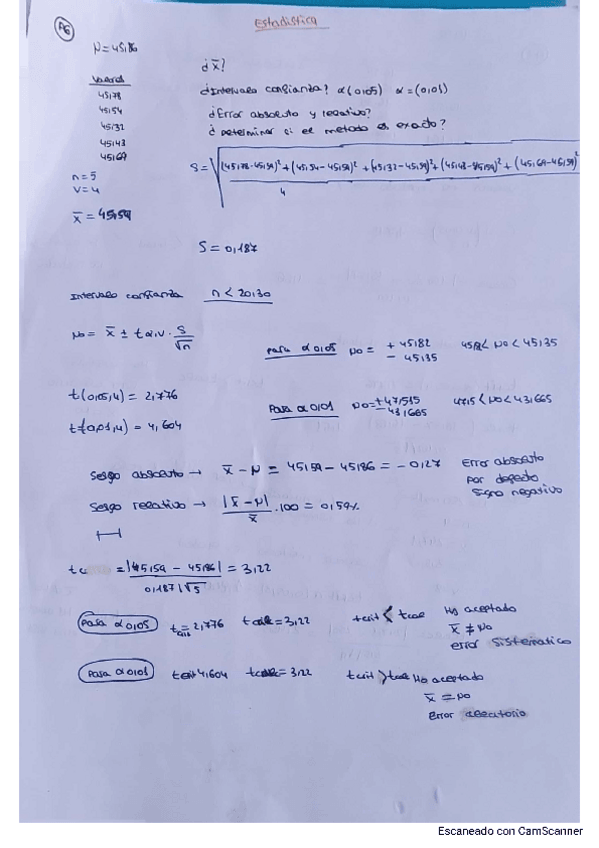 A6
Estadística
N = 45,86
Valores
45,78
45,54
45,32
45,43
45,69
n = 5
V = 4
x̄ = 45,59
¿x̄?
¿Intervalo confianza? α(0,05) α = (0,01)
¿Error absoluto y relativo?
¿Determinar si el metodo es exacto?
S = √((45,78-45,59)² + (45,54-45,59)² + (45,32-45,59)² + (45,43-45,59)² + (45,69-45,59)² / 4)
S = 0,187
Intervalo confianza n < 20,30
μo = x̄ ± t α,v · S/√n
Para α 0,05 μo = + 45,82 - 45,35 45,82 < μo < 45,35
t(0,05,4) = 2,776
t(0,01,4) = 4,604
Para α 0,01 μo = + 47,515 - 43,665 47,5 < μo < 43,665
Sesgo absoluto → x̄ - μ = 45,59 - 45,86 = - 0,27 Error absoluto por defecto signo negativo
Sesgo relativo → |x̄ - μ| / x̄ · 100 = 0,59%
= |45,59 - 45,86| / 0,187/√5 = 3,22
Para α 0,05 t = 2,776 = 3,22 tcrit < tcal Ho aceptado
x̄ ≠ μo
error sistematico
Para α 0,01 tcrit 4,604 = 3,22 tcrit > tcal Ho aceptado
x̄ = μo
Error aleatorio
Escaneado con CamScanner